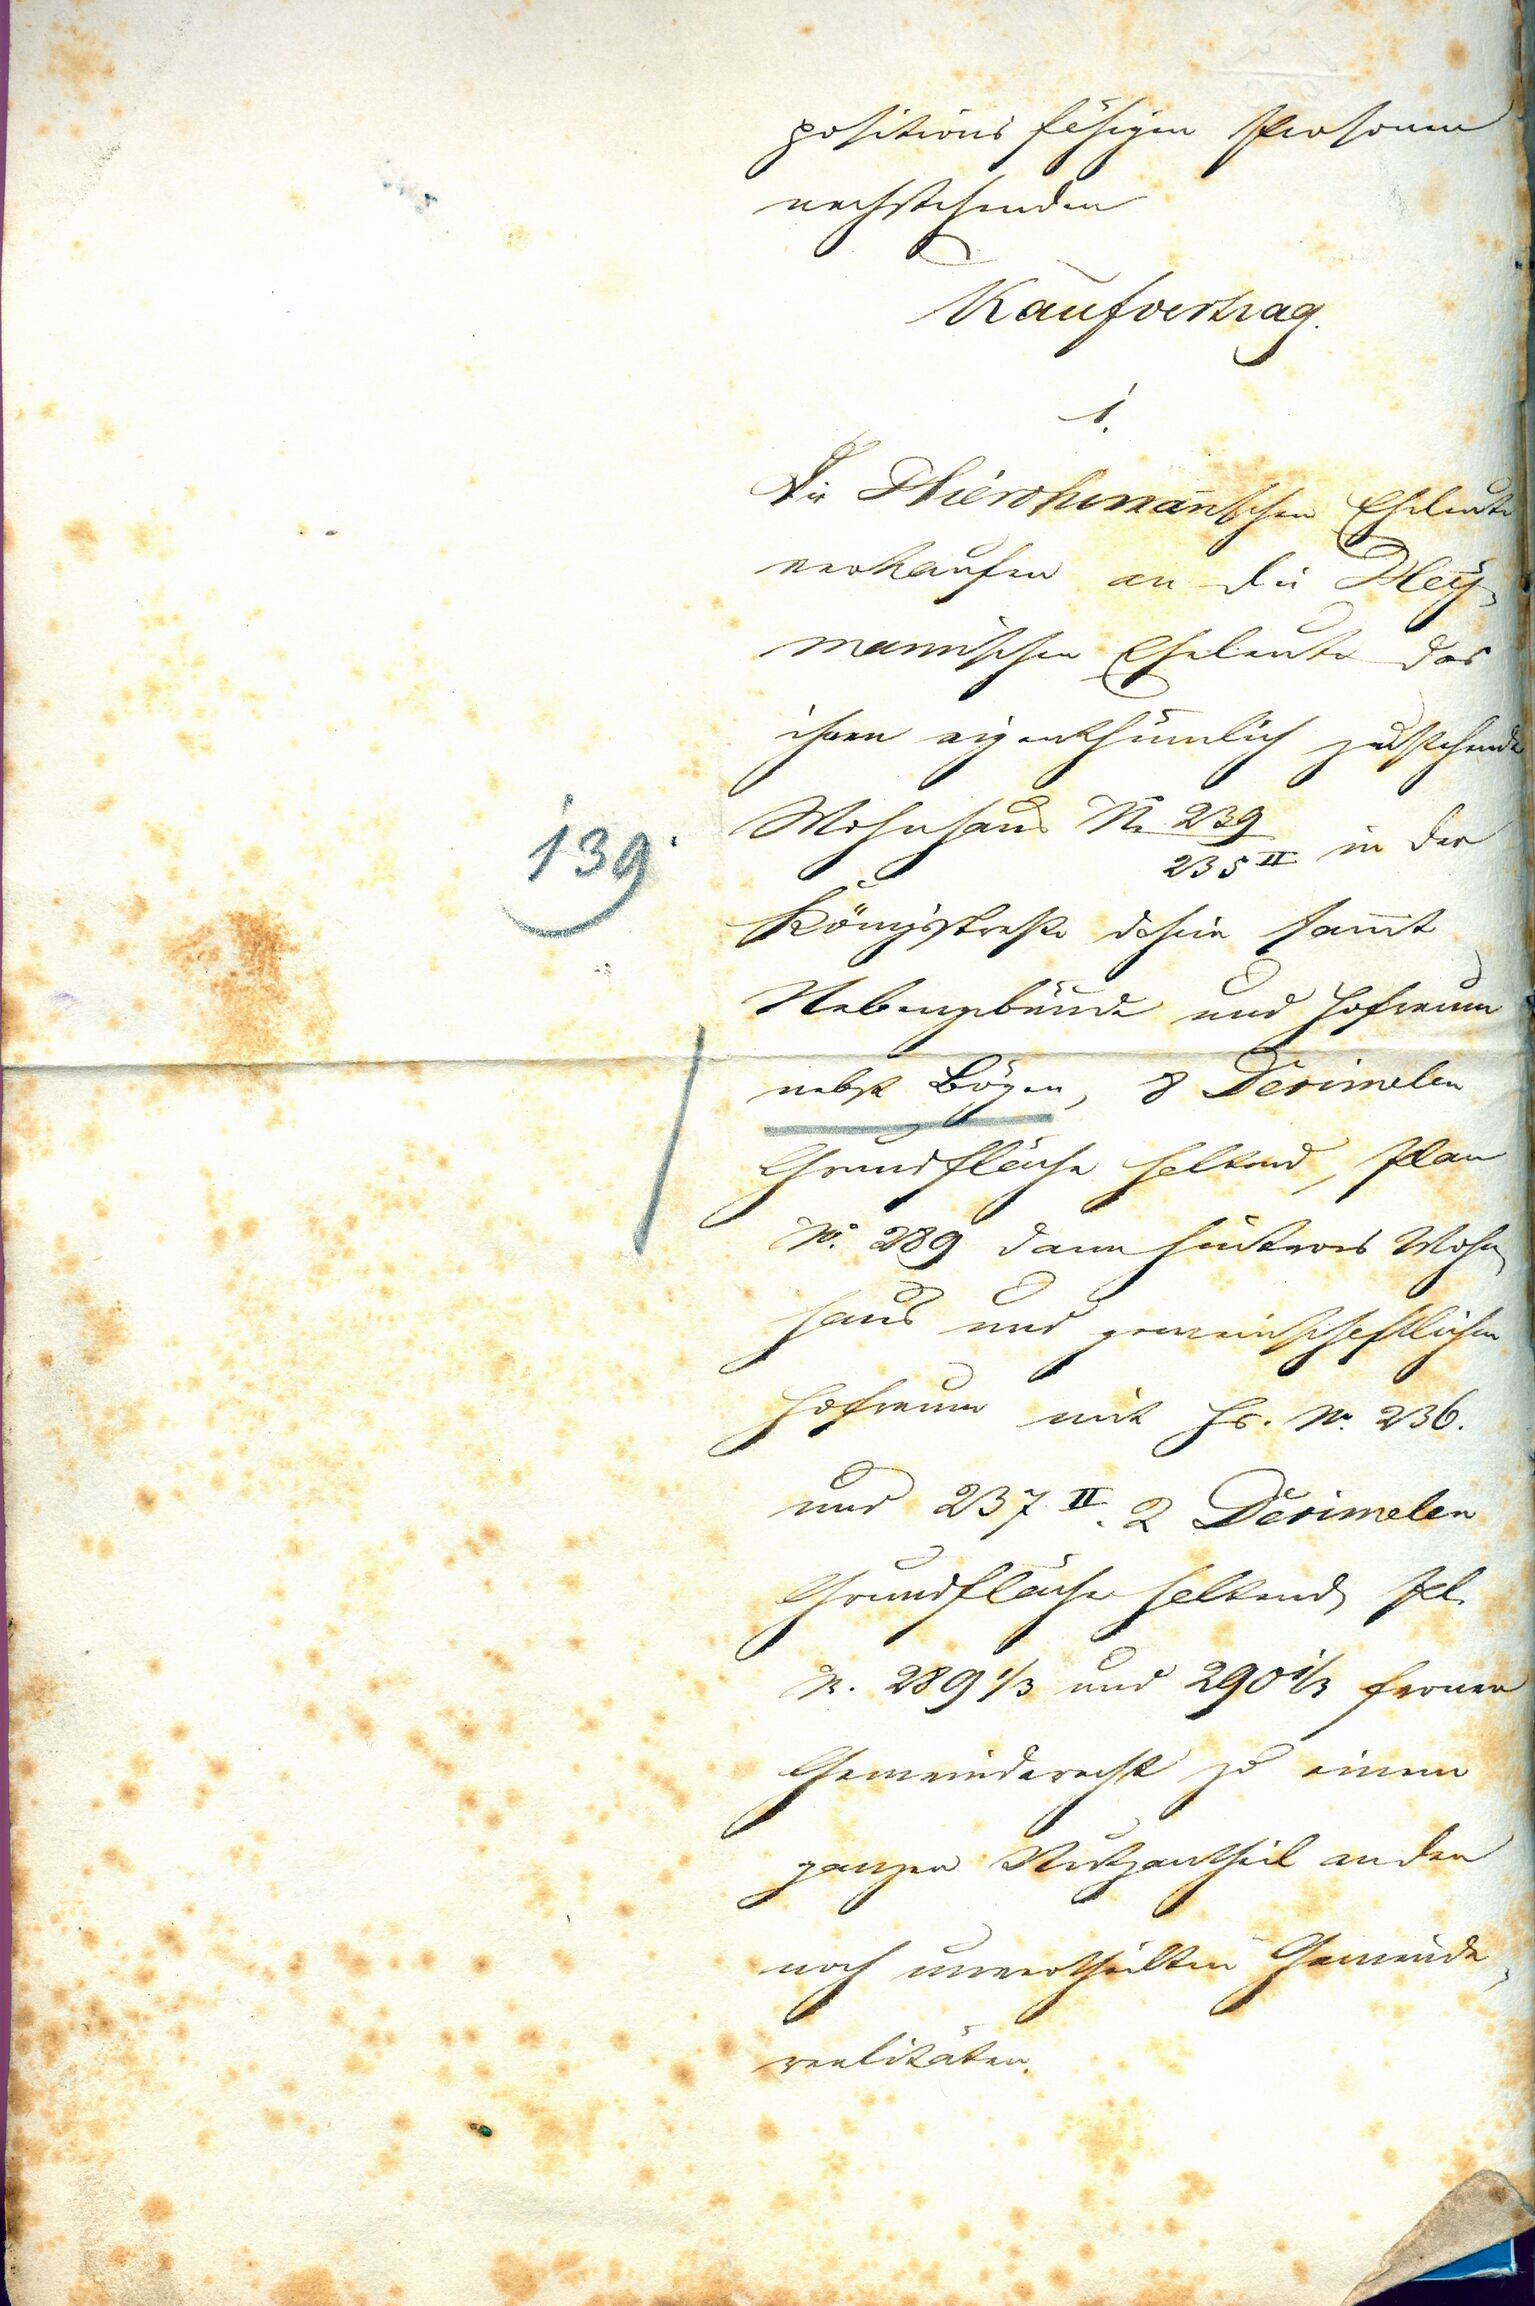 positionsfähigen Personen
nachstehenden
Kaufvertrag.
1.
Die Hierohmannschen Eheleute
verkaufen an die Hey-
mannischen Eheleute das
ihnen eigenthümlich zustehende
Wohnhaus No 239
235 II in der
Königsstraße dahier sammt
139.
Nebengebäude und Hofraum
nebst Bögen, 8 Dezimalen
Grundfläche haltend, Plan
No. 289 dann hinteres Wohn-
haus und gemeinschaftlichen
Hofraum mit Hs. No. 236.
und 237 II. 2 Dezimalen
Grundfläche haltend, Pl.
N. 289 1/3 und 290 1/3 ferner
Gemeinderecht zu einem
ganzen Nutzantheil an den
noch unvertheilten Gemeinde-
realitäten.